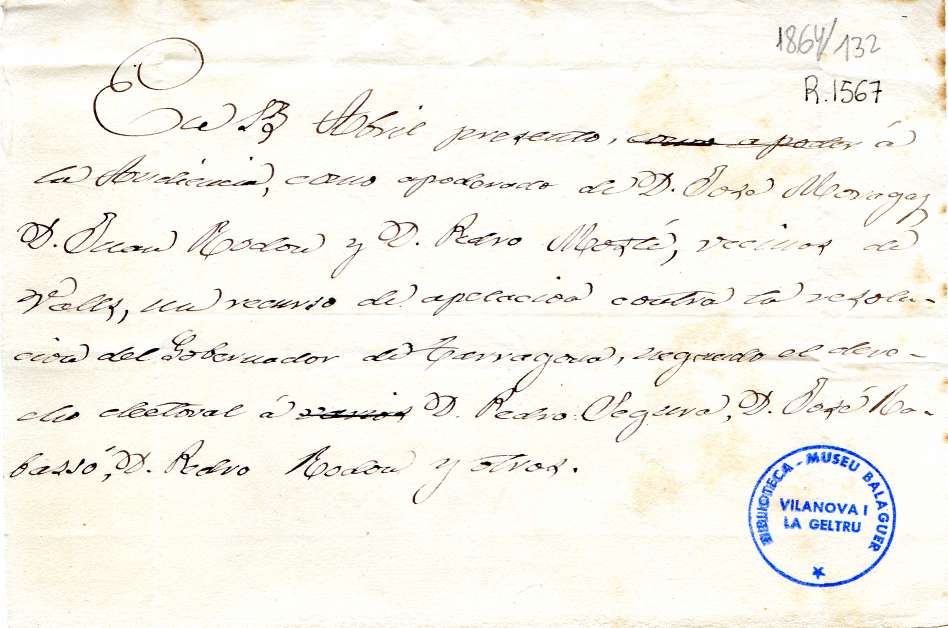 1864/132
R.1567
En 13 Abril presento, como apoder á
la Audiencia, como apoderado de D. José Moragas,
D. Juan Rodon y D. Pedro Mestre, vecinos de
Valls, un recurso de apelacion contra la resolu-
cion del Gobernador de Tarragona, negando el dere-
cho electoral á varios D. Pedro Segura, D. José Ra-
bassó, D. Pedro Rodon y otros.
BIBLIOTECA - MUSEU BALAGUER
VILANOVA I
LA GELTRU